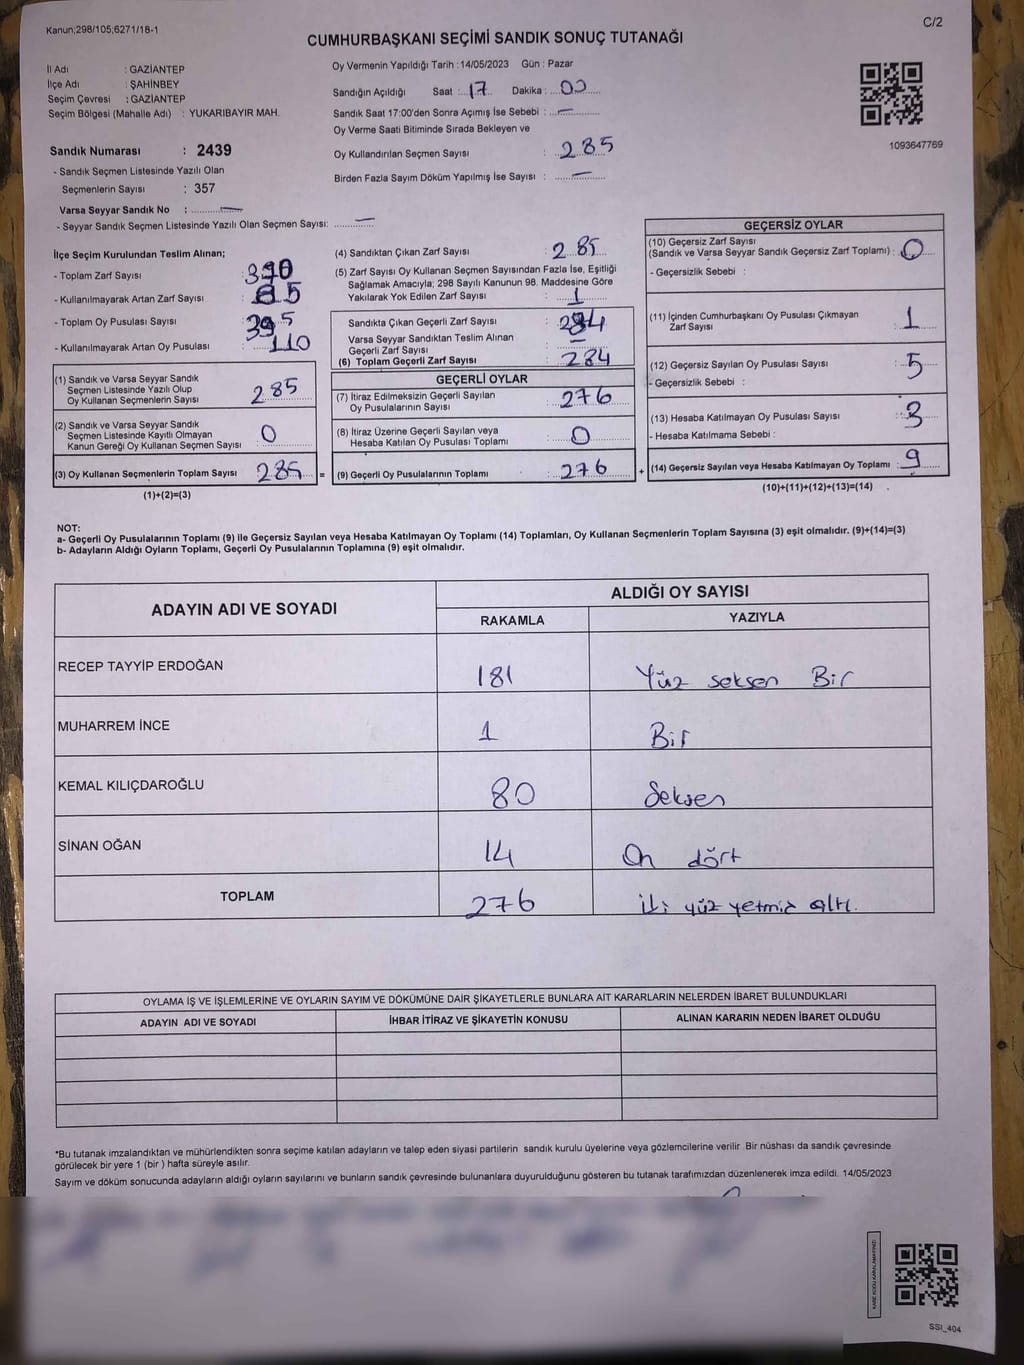 Kanun;298/105;6271/18-1
C/2
CUMHURBAŞKANI SEÇİMİ SANDIK SONUÇ TUTANAĞI
İl Adı : GAZİANTEP
İlçe Adı : ŞAHİNBEY
Seçim Çevresi : GAZİANTEP
Seçim Bölgesi (Mahalle Adı) : YUKARIBAYIR MAH.
Sandık Numarası : 2439
- Sandık Seçmen Listesinde Yazılı Olan
Seçmenlerin Sayısı : 357
Varsa Seyyar Sandık No : —
- Seyyar Sandık Seçmen Listesinde Yazılı Olan Seçmen Sayısı: —
Oy Vermenin Yapıldığı Tarih :14/05/2023 Gün : Pazar
Sandığın Açıldığı Saat : 17 Dakika : 00
Sandık Saat 17:00'den Sonra Açımış İse Sebebi : —
Oy Verme Saati Bitiminde Sırada Bekleyen ve
Oy Kullandırılan Seçmen Sayısı : 285
Birden Fazla Sayım Döküm Yapılmış İse Sayısı : —
1093647769
İlçe Seçim Kurulundan Teslim Alınan;
- Toplam Zarf Sayısı :
- Kullanılmayarak Artan Zarf Sayısı :
- Toplam Oy Pusulası Sayısı : 395
- Kullanılmayarak Artan Oy Pusulası : 110
(1) Sandık ve Varsa Seyyar Sandık
Seçmen Listesinde Yazılı Olup
Oy Kullanan Seçmenlerin Sayısı 285
(2) Sandık ve Varsa Seyyar Sandık
Seçmen Listesinde Kayıtlı Olmayan
Kanun Gereği Oy Kullanan Seçmen Sayısı 0
(3) Oy Kullanan Seçmenlerin Toplam Sayısı 285 =
(1)+(2)=(3)
(4) Sandıktan Çıkan Zarf Sayısı : 285
(5) Zarf Sayısı Oy Kullanan Seçmen Sayısından Fazla İse, Eşitliği
Sağlamak Amacıyla; 298 Sayılı Kanunun 98. Maddesine Göre
Yakılarak Yok Edilen Zarf Sayısı : 1
Sandıkta Çıkan Geçerli Zarf Sayısı : 284
Varsa Seyyar Sandıktan Teslim Alınan
Geçerli Zarf Sayısı : —
(6) Toplam Geçerli Zarf Sayısı : 284
GEÇERLİ OYLAR
(7) İtiraz Edilmeksizin Geçerli Sayılan
Oy Pusulalarının Sayısı : 276
(8) İtiraz Üzerine Geçerli Sayılan veya
Hesaba Katılan Oy Pusulası Toplamı : 0
(9) Geçerli Oy Pusulalarının Toplamı : 276 +
GEÇERSİZ OYLAR
(10) Geçersiz Zarf Sayısı
(Sandık ve Varsa Seyyar Sandık Geçersiz Zarf Toplamı) : 0
- Geçersizlik Sebebi :
(11) İçinden Cumhurbaşkanı Oy Pusulası Çıkmayan
Zarf Sayısı : 1
(12) Geçersiz Sayılan Oy Pusulası Sayısı : 5
- Geçersizlik Sebebi :
(13) Hesaba Katılmayan Oy Pusulası Sayısı : 3
- Hesaba Katılmama Sebebi :
(14) Geçersiz Sayılan veya Hesaba Katılmayan Oy Toplamı : 9
(10)+(11)+(12)+(13)=(14)
NOT:
a- Geçerli Oy Pusulalarının Toplamı (9) ile Geçersiz Sayılan veya Hesaba Katılmayan Oy Toplamı (14) Toplamları, Oy Kullanan Seçmenlerin Toplam Sayısına (3) eşit olmalıdır. (9)+(14)=(3)
b- Adayların Aldığı Oyların Toplamı, Geçerli Oy Pusulalarının Toplamına (9) eşit olmalıdır.
ADAYIN ADI VE SOYADI
ALDIĞI OY SAYISI
RAKAMLA YAZIYLA
RECEP TAYYİP ERDOĞAN 181 Yüz seksen Bir
MUHARREM İNCE 1 Bir
KEMAL KILIÇDAROĞLU 80 Seksen
SİNAN OĞAN 14 On dört
TOPLAM 276 iki yüz yetmiş altı.
OYLAMA İŞ VE İŞLEMLERİNE VE OYLARIN SAYIM VE DÖKÜMÜNE DAİR ŞİKAYETLERLE BUNLARA AİT KARARLARIN NELERDEN İBARET BULUNDUKLARI
ADAYIN ADI VE SOYADI İHBAR İTİRAZ VE ŞİKAYETİN KONUSU ALINAN KARARIN NEDEN İBARET OLDUĞU
*Bu tutanak imzalandıktan ve mühürlendikten sonra seçime katılan adayların ve talep eden siyasi partilerin sandık kurulu üyelerine veya gözlemcilerine verilir .Bir nüshası da sandık çevresinde
görülecek bir yere 1 (bir ) hafta süreyle asılır.
Sayım ve döküm sonucunda adayların aldığı oyların sayılarını ve bunların sandık çevresinde bulunanlara duyurulduğunu gösteren bu tutanak tarafımızdan düzenlenerek imza edildi. 14/05/2023
SSI_404